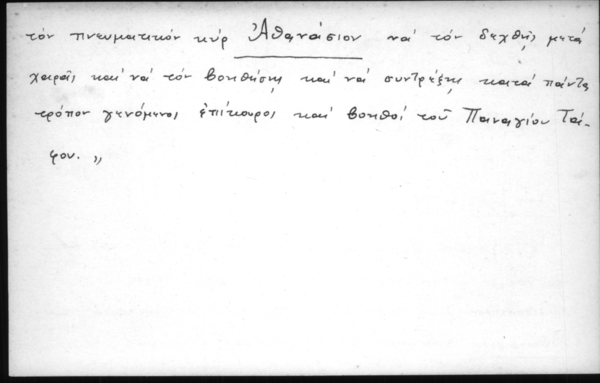 τόν πνευματικόν κύρ Ἀθανάσιον νά τόν δεχθῇς μετά
χαρᾶς καί νά τόν βοηθήσῃς καί νά συντρέξῃς κατά πάντα
τρόπον γενόμενοι ἐπίκουροι καί βοηθοί τοῦ Παναγίου Τά-
φου. „